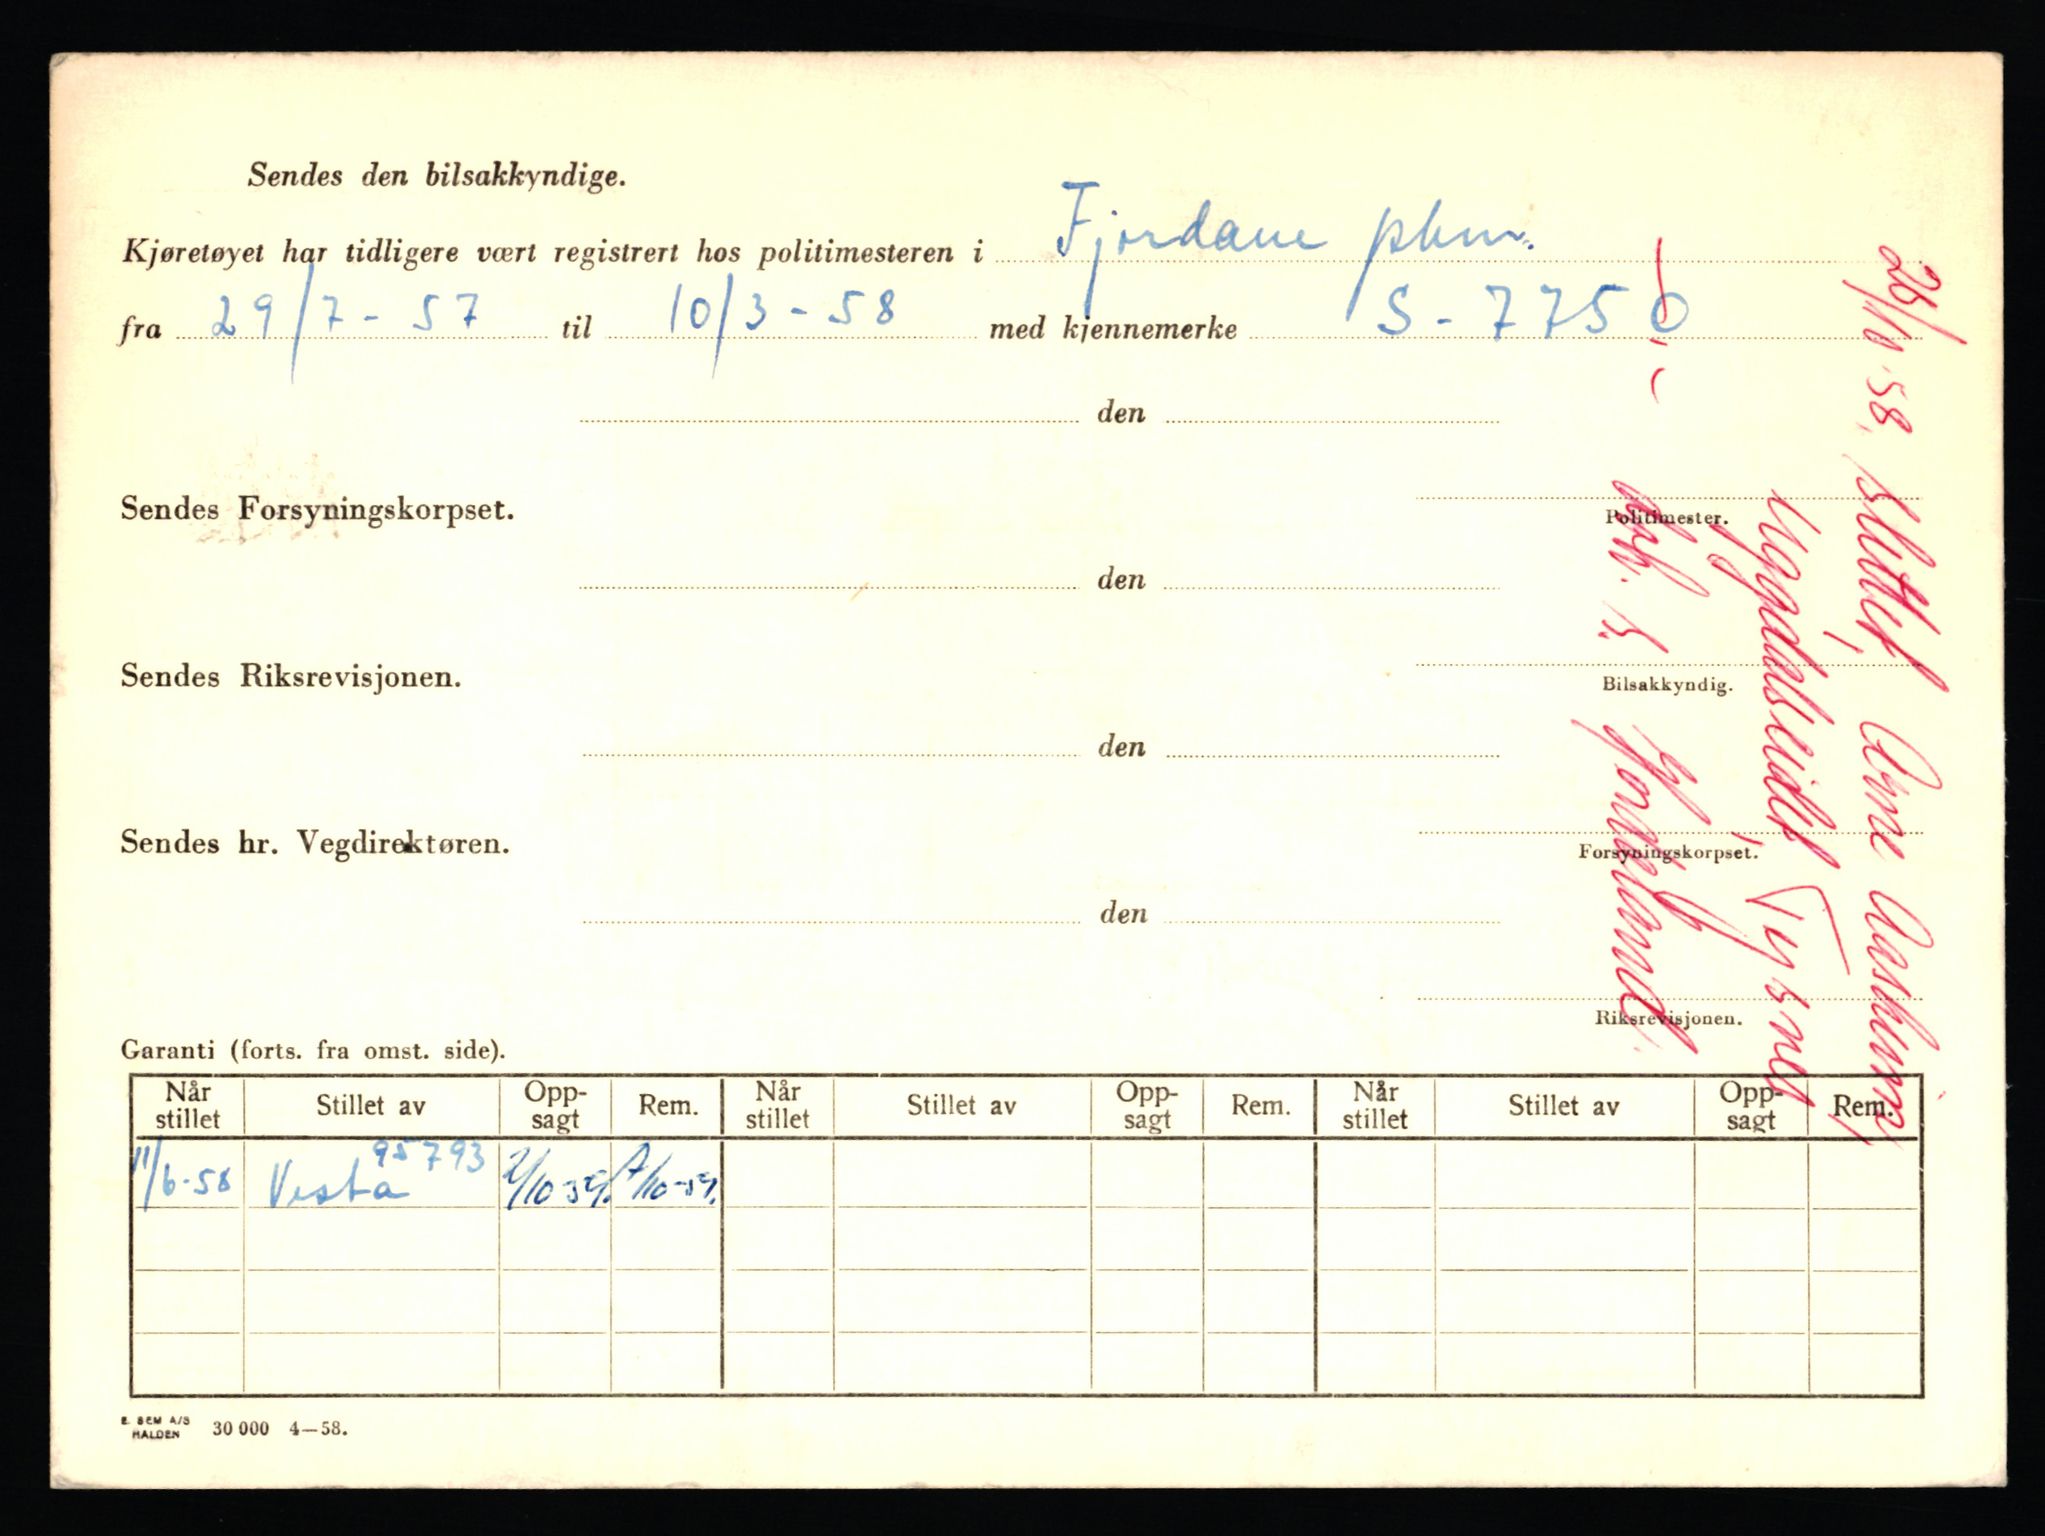 Sendes den bilsakkyndige.
Kjøretøyet har tidligere vært registrert hos politimesteren i Fjordane pkm.
fra 29/7-57 til 10/3-58 med kjennemerke S-7750
den
Politimester.
Sendes Forsyningskorpset.
den
Bilsakkyndig.
Sendes Riksrevisjonen.
den
Forsyningskorpset.
Sendes hr. Vegdirektøren.
den
Riksrevisjonen.
26/10-58. Slettet,
Tysnes
Garanti (forts. fra omst. side).
Når stillet Stillet av Opp-sagt Rem. Når stillet Stillet av Opp-sagt Rem. Når stillet Stillet av Opp-sagt Rem.
11/6-58 Vesta 95793 2/10-59. 7/10-59.
E. SEM A/S
HALDEN 30 000 4—58.